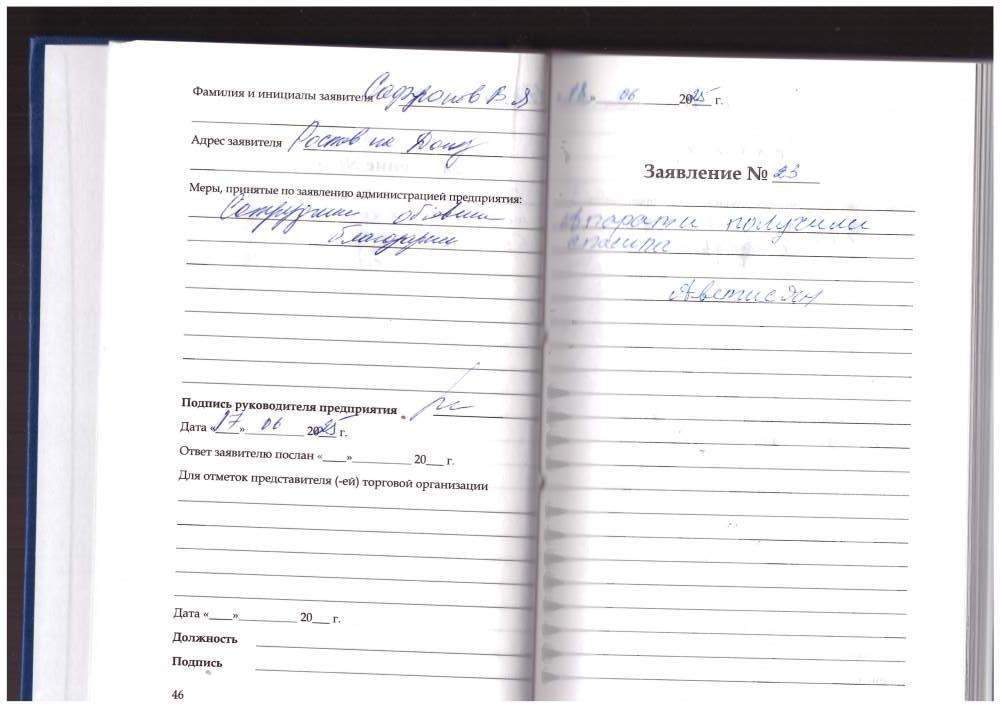 Фамилия и инициалы заявителя Сафронов В.Я
Адрес заявителя Ростов на Дону
Меры, принятые по заявлению администрацией предприятия:
Сотруднику объявили
Подпись руководителя предприятия
Дата «17» 06 2025 г.
Ответ заявителю послан «___»__________ 20___ г.
Для отметок представителя (-ей) торговой организации
Дата «___»__________ 20___ г.
Должность
Подпись
46
18» 06 2025 г.
Заявление № 23
получили
Аветисян